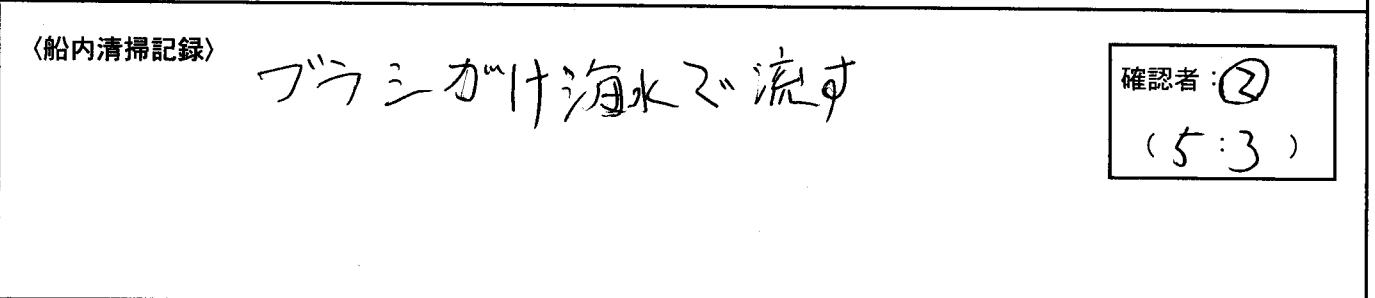 〈船内清掃記録〉
ブラシがけ海水で流す
確認者:②
(5:3)